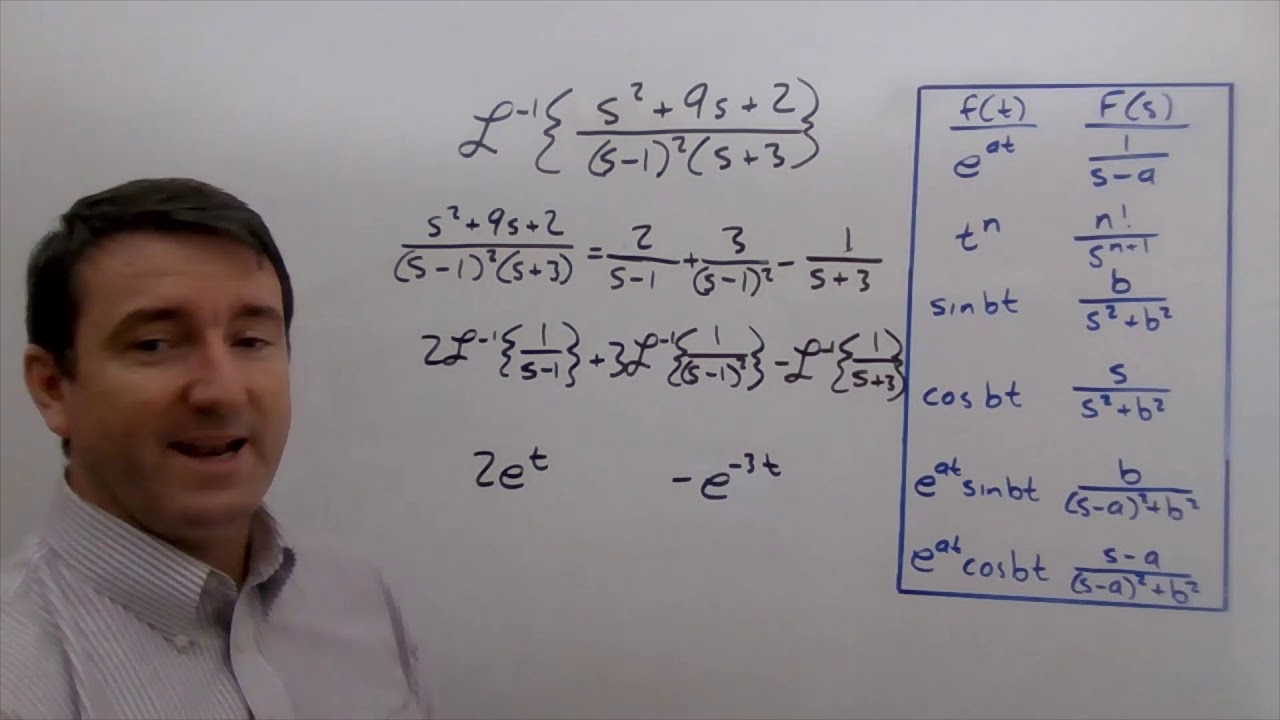 ℒ⁻¹{(s²+9s+2)/((s-1)²(s+3))}
(s²+9s+2)/((s-1)²(s+3)) = 2/(s-1) + 3/(s-1)² - 1/(s+3)
2ℒ⁻¹{1/(s-1)} + 3ℒ⁻¹{1/(s-1)²} - ℒ⁻¹{1/(s+3)}
2eᵗ -e⁻³ᵗ
f(t) F(s)
eᵃᵗ 1/(s-a)
tⁿ n!/sⁿ⁺¹
sinbt b/(s²+b²)
cosbt s/(s²+b²)
eᵃᵗsinbt b/((s-a)²+b²)
eᵃᵗcosbt (s-a)/((s-a)²+b²)